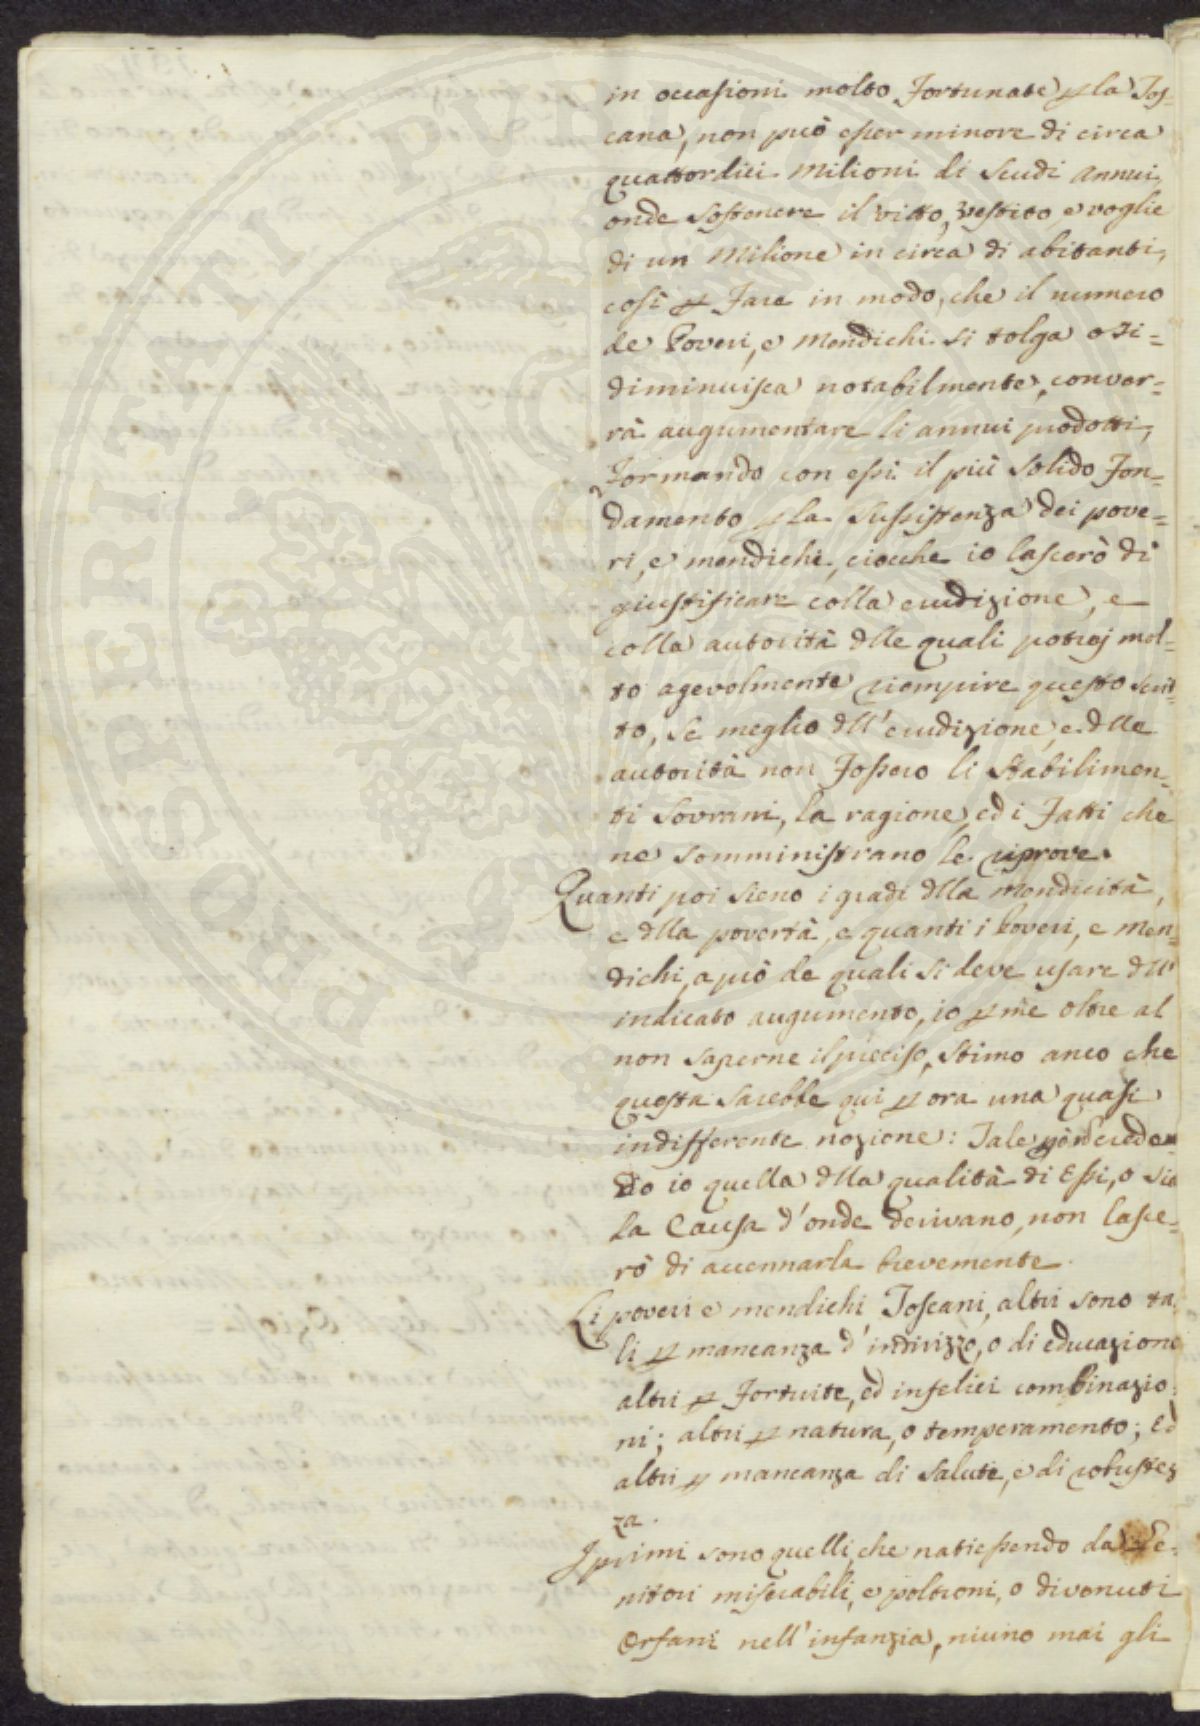 in occasioni molto fortunate p la Tos-
cana, non può esser minore di circa
quattordici Milioni di Scudi annui,
onde sostenere il vitto, vestito, e voglie
di un Milione in circa di abitanti,
così p fare in modo, che il numero
de Poveri, e Mendichi si tolga o si=
diminuisca notabilmente, conver=
rà augumentare li annui prodotti,
formando con essi il più solido fon=
damento p la sussistenza dei pove=
ri, e mendichi, ciocche io lascerò di
giustificare colla erudizione, e
colla autorità dlle quali potrej mol=
to agevolmente riempire questo scrit=
to, se meglio dll'erudizione, e dlle
autorità non fossero li Stabilimen=
ti Sovrani, la ragione, ed i fatti che
ne somministrano le riprove.
Quanti poi sieno i gradi dlla mendicità,
e dlla povertà, e quanti i Poveri, e Men=
dichi, a prò de quali si deve usare dll'
indicato augumento, io p me oltre al
non saperne il preciso, stimo anco che
questa sarebbe qui p ora una quasi
indifferente nozione: Tale però creden
do io quella dlla qualità di Essi, o sia
la Causa d'onde derivano, non lasce=
rò di accennarla brevemente.
Li poveri e mendichi Toscani, altri sono ta
li p mancanza d'indirizzo, o di educazione
altri p fortuite, ed infelici combinazio
ni; altri p natura, o temperamento; Ed
altri p mancanza di salute, e di robustez
za.
I primi sono quelli, che nati essendo da Ge=
nitori miserabili, e poltroni, o divenuti
Orfani nell'infanzia, niuno mai gli
PROSPERITATI PUBLICAE